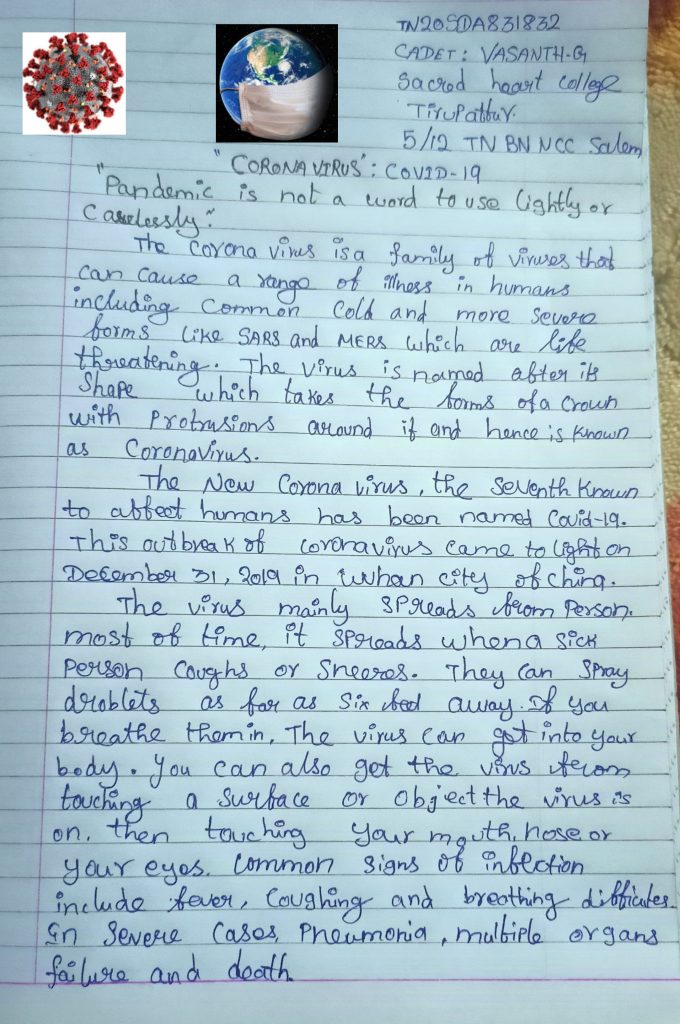 TN20SDA831832
CADET: VASANTH-G
Sacred heart college
Tirupattur.
5/12 TN BN NCC Salem
"CORONAVIRUS": COVID-19
"Pandemic is not a word to use lightly or
Carelessly"
The Corona virus is a family of viruses that
can cause a range of illness in humans
including Common Cold and more severe
forms like SARS and MERS which are life
threatening. The virus is named after its
Shape which takes the forms of a crown
with Protrusions around it and hence is known
as Coronavirus.
The New Corona virus, the seventh known
to affect humans has been named Covid-19.
This outbreak of coronavirus came to light on
December 31, 2019 in Wuhan city of china.
The virus mainly spreads from Person.
most of time, it spreads when a sick
person coughs or sneezes. They can spray
droblets as far as six feed away. If you
breathe them in, The virus can get into your
body. You can also get the virus from
touching a surface or object the virus is
on, then touching your mouth, nose or
your eyes. Common signs of infection
include fever, coughing and breathing difficutes.
In Severe cases Pneumonia, multiple organs
failure and death.